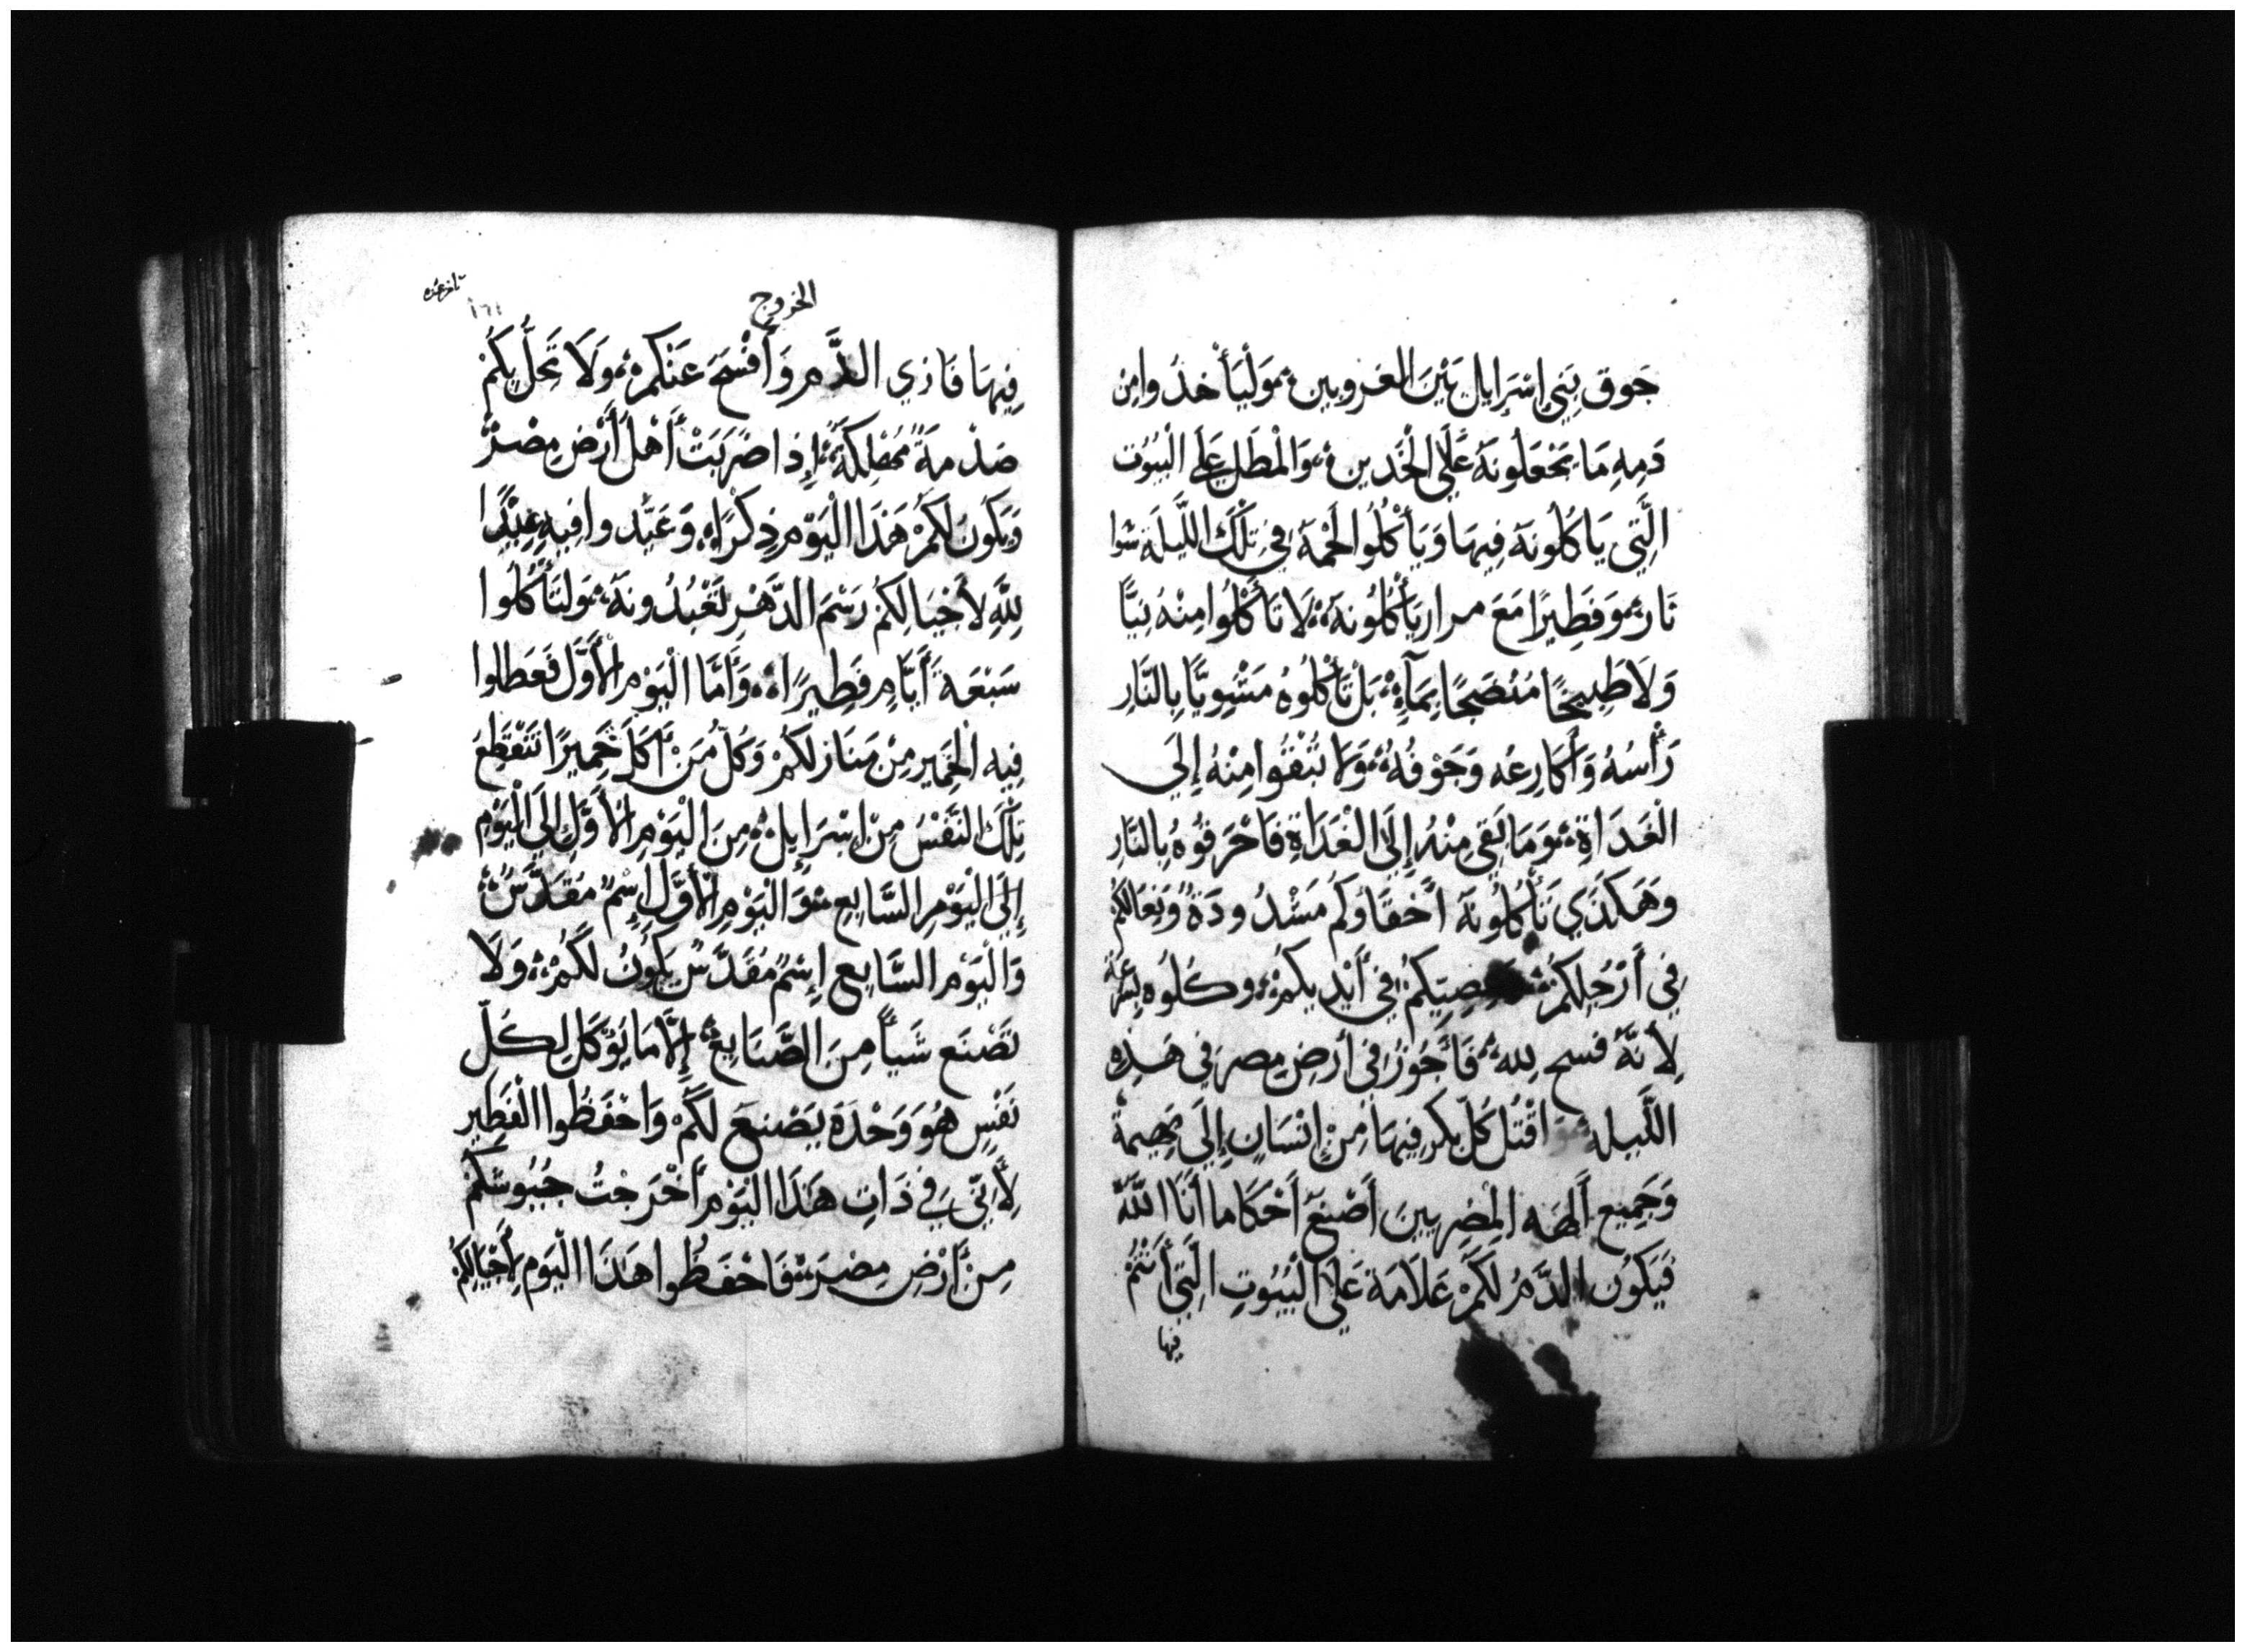 جَوق بَنِي إِسْرَايِل بَيْنَ الغروبين، وَلْيَأْخذُوا مِن
دَمِهِ مَا يَجْعَلُونَهُ عَلَى الْخَدين، وَالْمَطَل عَلَى الْبُيُوت
الَّتِي يَاكُلُونَهُ فِيهَا وَيَأْكُلُوا لَحْمَهُ فِي تِلْكَ اللَّيلَة شوا
نَار، وَفَطِيرًا مَعَ مرار يَأْكُلُونَهُ، لَا تَأْكُلُوا مِنْهُ نِيًّا
وَلَا طَبِيخًا مُنْضَجًا بِمَآءٍ، بَلْ تَأْكُلُوهُ مَشْوِيًّا بِالنَّارِ
رَأْسُهُ وَأَكَارِعُه وَجَوْفُهُ، وَلَا تُبْقُوا مِنْهُ إِلَى
الْغَدَاةِ، وَمَا بَقِيَ مِنْهُ إِلَى الْغَدَاةِ فَاحْرَقُوهُ بِالنَّارِ
وَهَكَذَي تَأْكُلُونَهُ أَحْقَاوكُم مَشْدُودَةً وَنِعَالكُمْ
فِي أَرْجُلِكُمْ، وعصِيّكُمْ فِي أَيْدِيكُمْ، وكُلُوه بِسُرعَة
لِأَنَّهُ فسح لِلهِ، فَأَجُوزُ فِي أَرضِ مِصر فِي هَذِهِ
اللَّيله، وَاقْتُل كُلّ بِكر فِيهَا مِنْ إِنْسَانٍ إِلَى بَهِيمةٍ
وَجَمِيع أَلِهَه الْمِصْرِيينَ أَصْنَعُ أَحْكَاما أَنَا اللَّهُ
فَيَكوُن الدَّمُ لَكُمْ عَلَامَة عَلَى الْبُيُوتِ الَّتِي أَنْتُمْ
فيها
الخروج
١٦١
فِيهَا فَارَي الدَّم وَأَفْسَح عَنْكُمْ، وَلَا تَحِلُّ بِكُمْ
صَدْمَةً مُهْلِكَةً، إِذَا ضَرَبَتْ أَهْلَ أَرْضِ مِصْرْ
وَيَكُونَ لَكُمْ هَذَا الْيَوْم ذِكْرًا، وَعَيِّدوا فِيهِ عِيدًا
لِلَّهِ لأَجْيَالِكُمْ رَسْمَ الدَّهْرِ تَعْبُدُونَهُ، وَلتَأْكُلُوا
سَبْعَةَ أَيَّامٍ فَطِيرًا، وَأَمَّا الْيَوْم الْأَوَّل فَعَطلوا
فِيه الْخَمِير مِنْ مَنَازلكُمْ وَكُلّ مَنْ أَكَلَ خَمِيرًا تَنْقَطِعُ
تِلْكَ النَّفْسُ مِنْ إِسْرَايِل، مِنَ الْيَوْمِ الْأَوَّلِ إِلَى الْيَوْمِ
إِلَى الْيَوْمِ السَّابِعِ، وَالْيَوْمِ الْأَوَّلِ إِسْمٌ مُقَدَّسٌ،
وَالْيَوْمِ السَّابِع إِسْمٌ مُقَدَّسٌ يَكُونُ لَكُمْ، وَلَا
تَصْنَع شَيأً مِنَ الصَّنَايِعِ، إِلَّا مَا يَوْكَل لِكُلّ
نَفْسٍ هُوَ وَحْدَهُ يَصْنعَ لَكُمْ وَاحْفَظُوا الْفَطِير
لأَنِّي فِي ذَاتِ هَذَا الْيَوْمِ أَخْرَجْتُ جُيُوشَكُمْ
مِنْ أَرْضِ مِصْرَ، فَاحْفَظُوا هَذَا الْيَوْم لِأَجْيَالِكُمْ